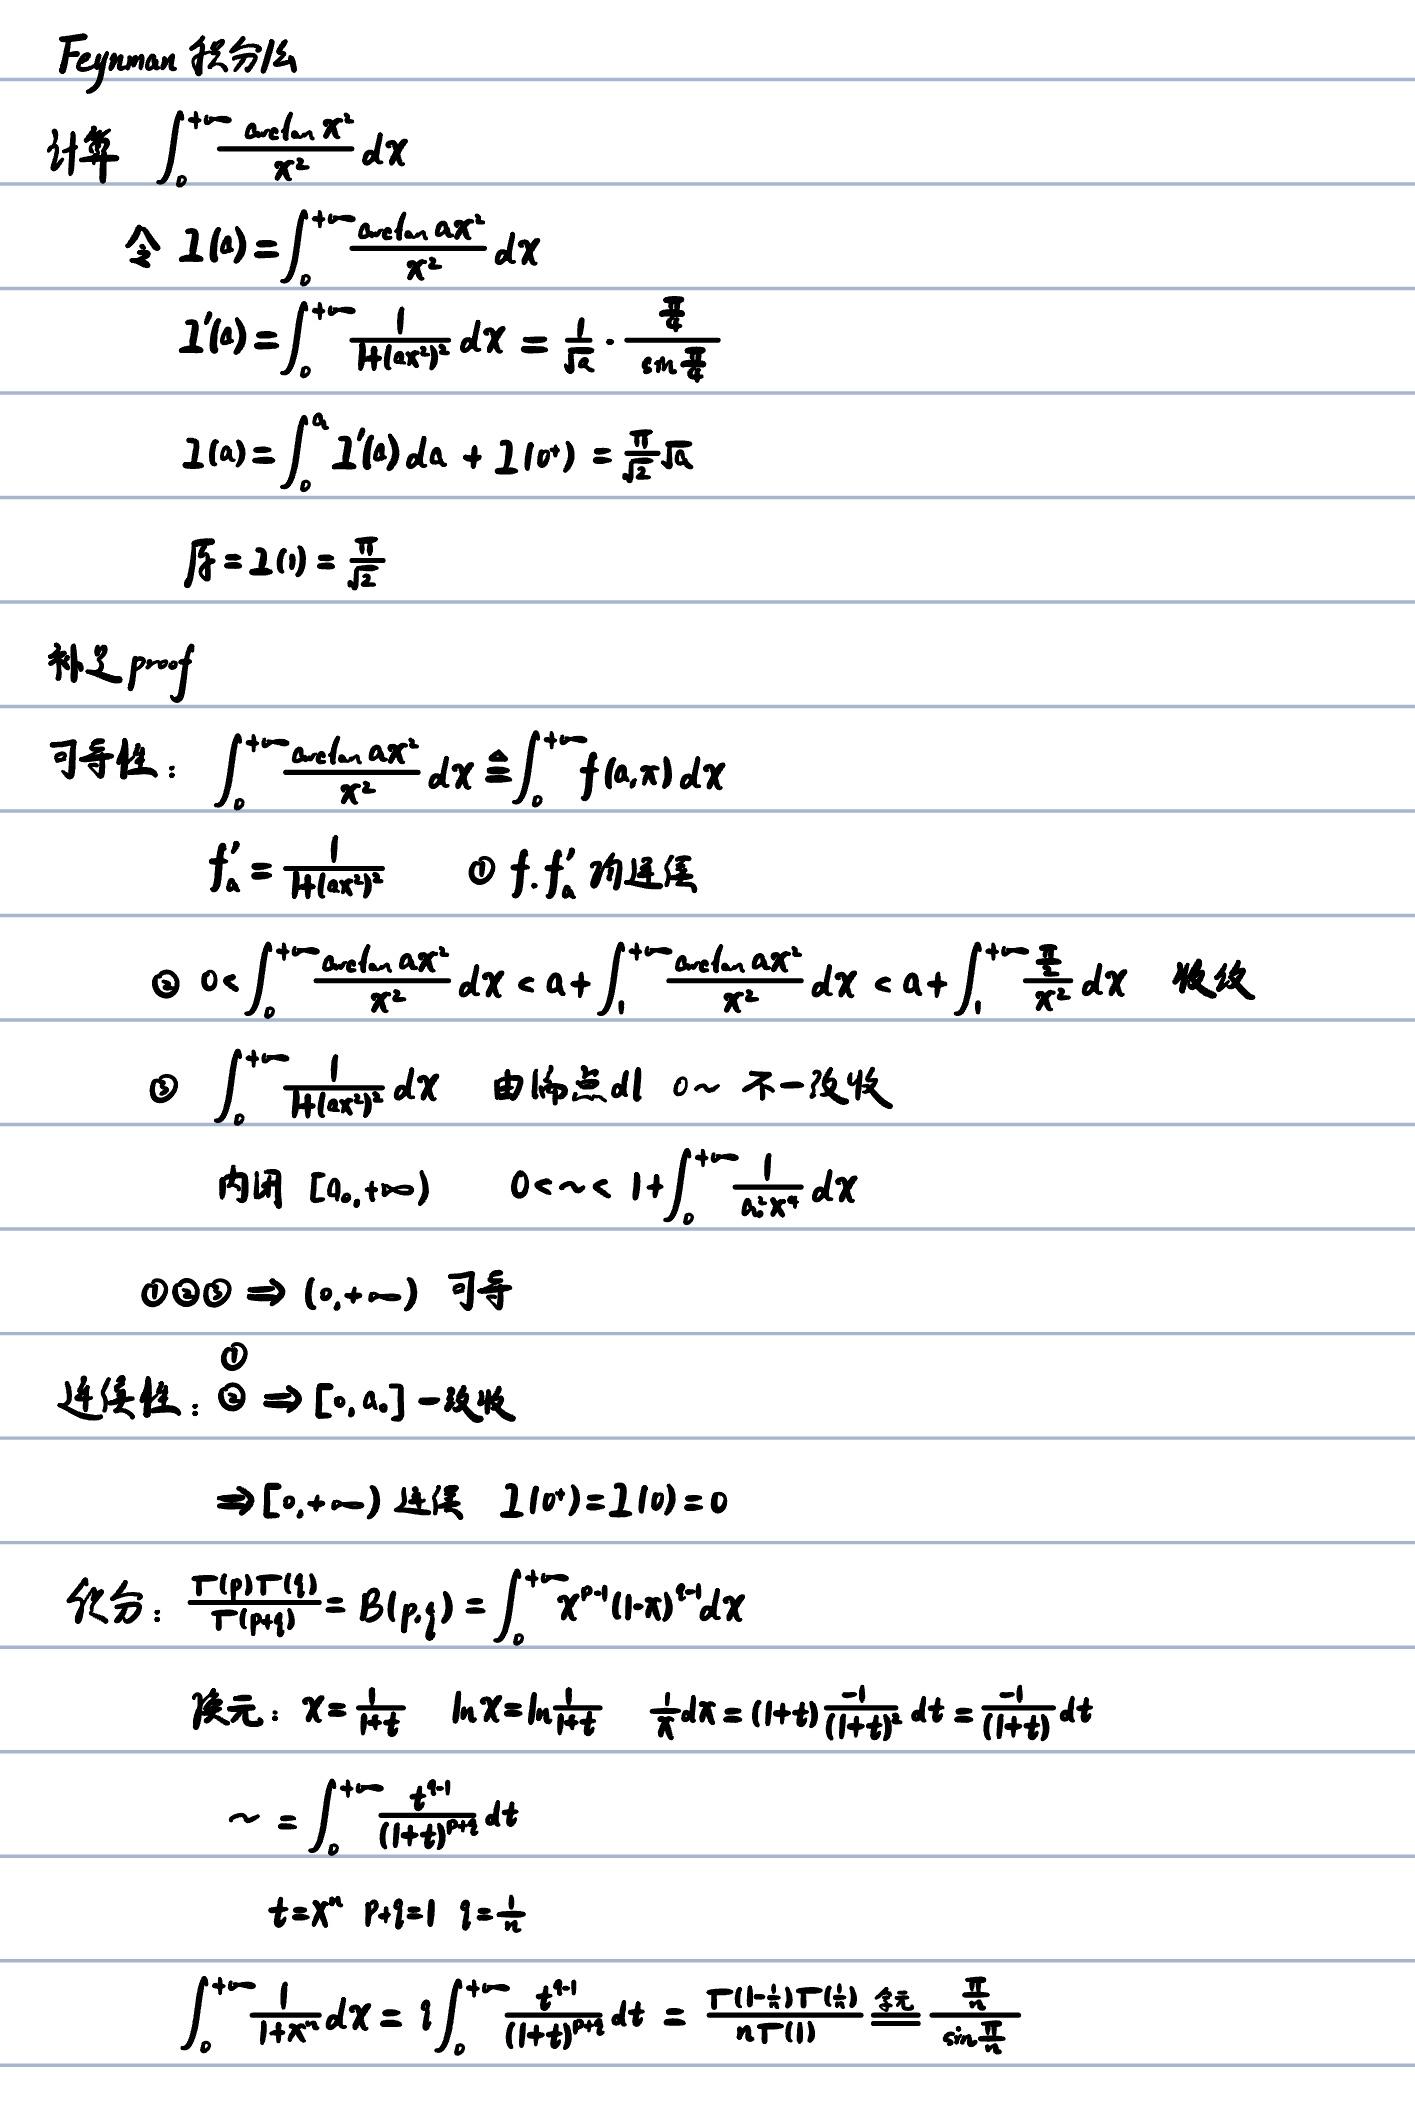 Feynman 积分法
计算 ∫₀^{+∞} \frac{arctan x²}{x²} dx
令 I(a) = ∫₀^{+∞} \frac{arctan ax²}{x²} dx
I'(a) = ∫₀^{+∞} \frac{1}{1+(ax²)²} dx = \frac{1}{√a} · \frac{\frac{π}{4}}{sin \frac{π}{4}}
I(a) = ∫₀^{a} I'(a) da + I(0⁺) = \frac{π}{√2} √a
原 = I(1) = \frac{π}{√2}
补足 proof
可导性: ∫₀^{+∞} \frac{arctan ax²}{x²} dx ≜ ∫₀^{+∞} f(a,x) dx
f'_a = \frac{1}{1+(ax²)²} ① f. f'_a 均连续
② 0 < ∫₀^{+∞} \frac{arctan ax²}{x²} dx < a + ∫₁^{+∞} \frac{arctan ax²}{x²} dx < a + ∫₁^{+∞} \frac{\frac{π}{2}}{x²} dx 收敛
③ ∫₀^{+∞} \frac{1}{1+(ax²)²} dx 由端点dl 0~ 不一致收
内闭 [a₀,+∞) 0 < ~ < 1 + ∫₀^{+∞} \frac{1}{a₀²x⁴} dx
①②③ ⇒ (0,+∞) 可导
①
连续性: ② ⇒ [0,a₀] 一致收
⇒ [0,+∞) 连续 I(0⁺) = I(0) = 0
积分: \frac{Γ(p)Γ(q)}{Γ(p+q)} = B(p,q) = ∫₀^{+∞} x^{p-1}(1-x)^{q-1} dx
换元: x = \frac{1}{1+t} ln x = ln \frac{1}{1+t} \frac{1}{x} dx = (1+t) \frac{-1}{(1+t)²} dt = \frac{-1}{(1+t)} dt
~ = ∫₀^{+∞} \frac{t^{q-1}}{(1+t)^{p+q}} dt
t = xⁿ p+q=1 q = \frac{1}{n}
∫₀^{+∞} \frac{1}{1+xⁿ} dx = q ∫₀^{+∞} \frac{t^{q-1}}{(1+t)^{p+q}} dt = \frac{Γ(1-\frac{1}{n})Γ(\frac{1}{n})}{nΓ(1)} \overset{余元}{=} \frac{\frac{π}{n}}{sin \frac{π}{n}}